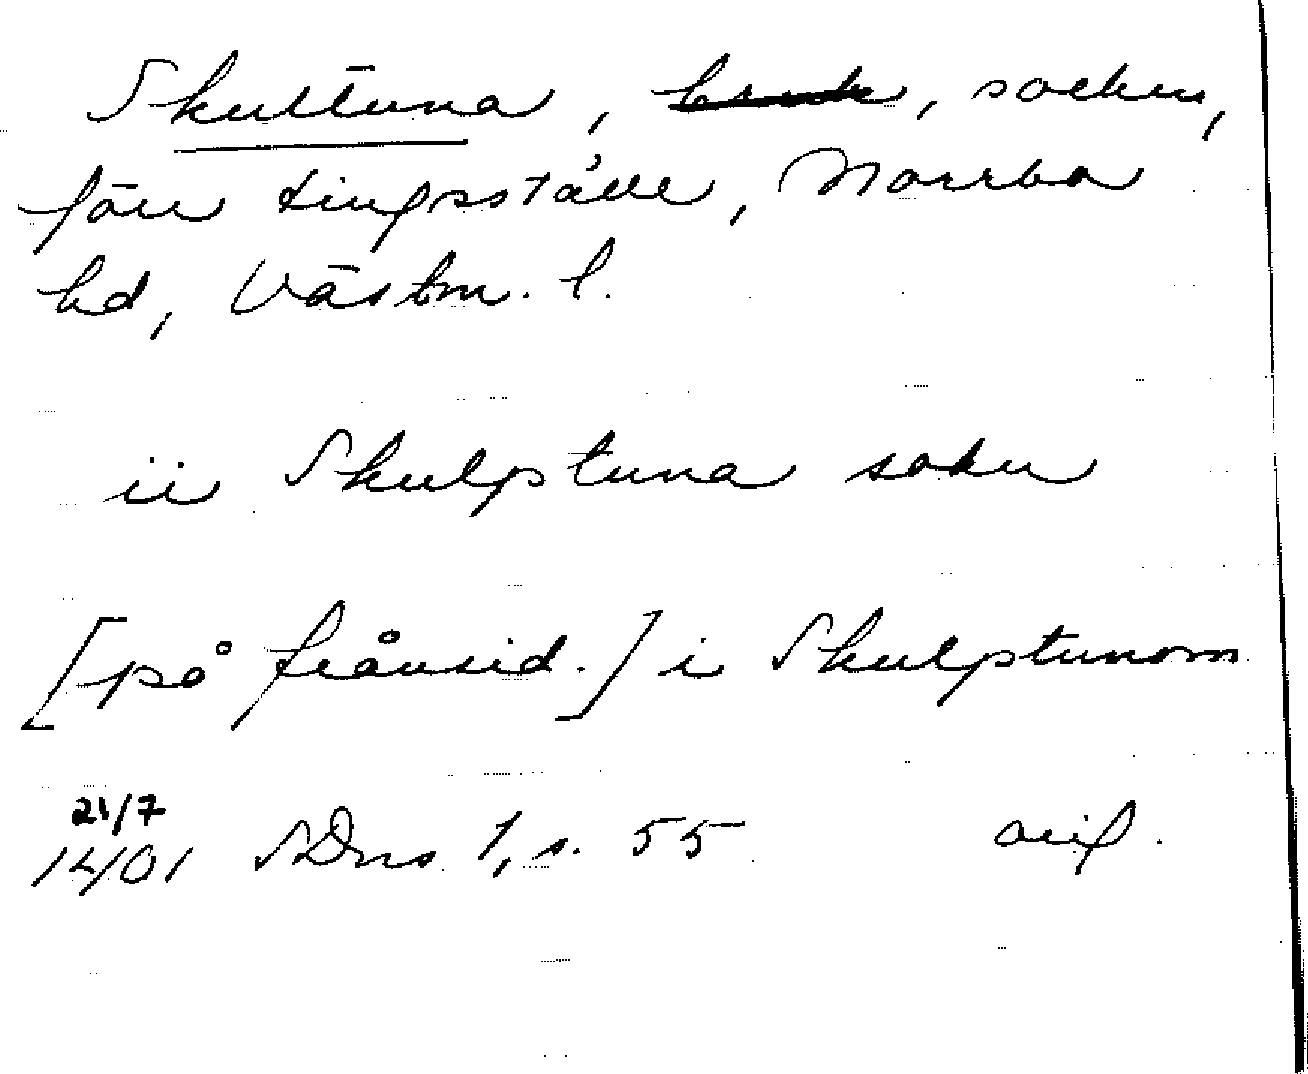 Skultuna, bruk, socken,
förr tingsställe, Norrbo
hd, Västm. l.
ii Skulptuna sokn
[på frånsid.] i Skulptunom
21/7
1401 SDns 1, s. 55 orig.